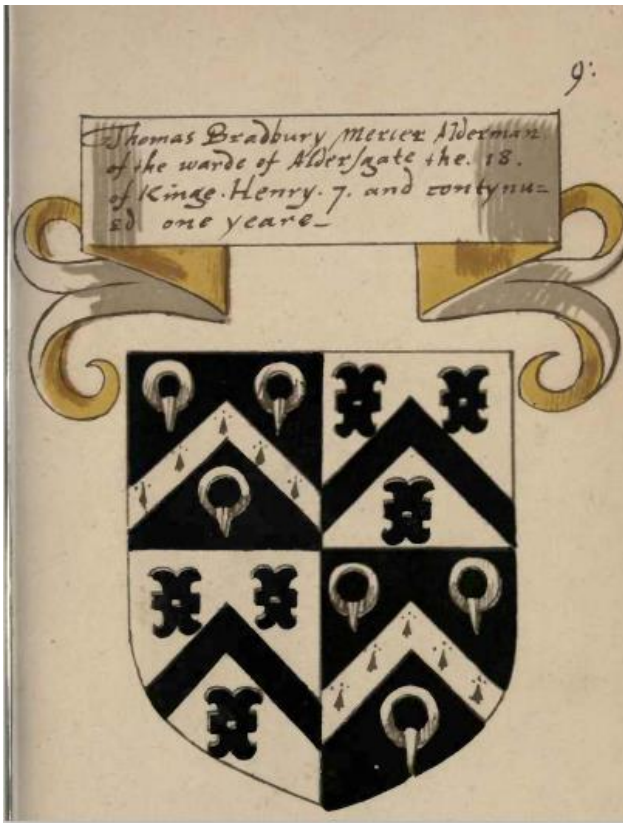 9:
Thomas Bradbury Mercer Alderman
of the warde of Aldersgate the. 18.
of Kinge. Henry. 7. and contynu=
ed one yeare_